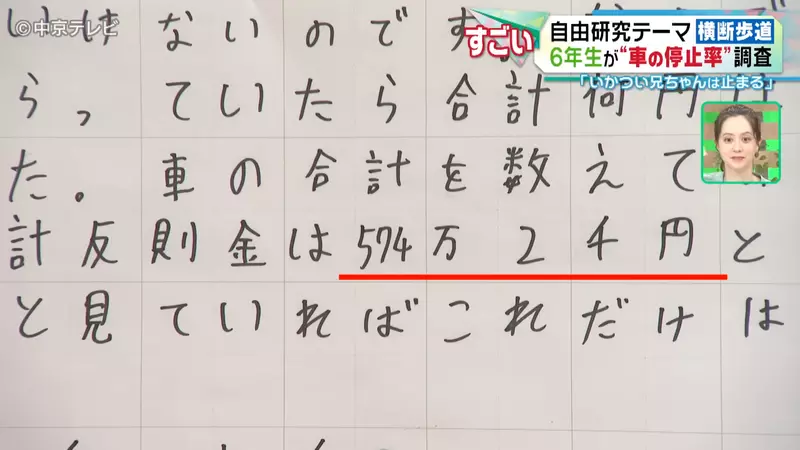 © 中京テレビ
すごい
自由研究テーマ 横断歩道
6年生が“車の停止率”調査
「いかつい兄ちゃんは止まる」
いけないのです
らっていたら合計何円
た。車の合計を数えて
計反則金は574万2千円と
と見ていればこれだけは